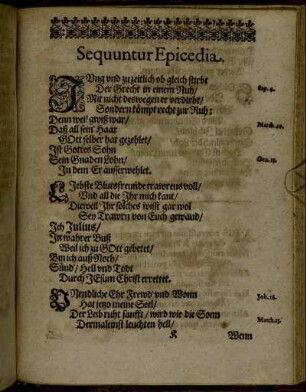 Sequuntur Epicedia.
JUng vnd zuzeitlich ob gleich stirbt
Der Grecht in einem Nuh/
Mit nicht deswegen er verdirbt/
Sondern kömpt recht zur Ruh:
Denn weil gwiß war/
Daß all sein Haar
GOtt selber hat gezehlet/
Ist Gottes Sohn
Sein Gnaden Lohn/
In dem Er außerwehlet.
LIebste Blutsfreunde trawrens voll/
Vnd all die Jhr mich kant/
Dieweil Jhr solches wisst gar wol
Sey Trawrn von Euch gewand/
Jch Julius/
Jn wahrer Buß
Weil ich zu GOtt gebetet/
Bin ich auß Noth/
Sünd/ Hell vnd Todt
Durch JEsum Christ errettet.
VNendliche Ehr Frewd vnd Wonn
Hat jetzo meine Seel/
Der Leib ruht sanfft/ wird wie die Sonn
Dermaleinst leuchten hell/
K
Wenn
Sap. 4.
Matth. 10.
Gen. 15.
Joh. 16.
Matth. 13.